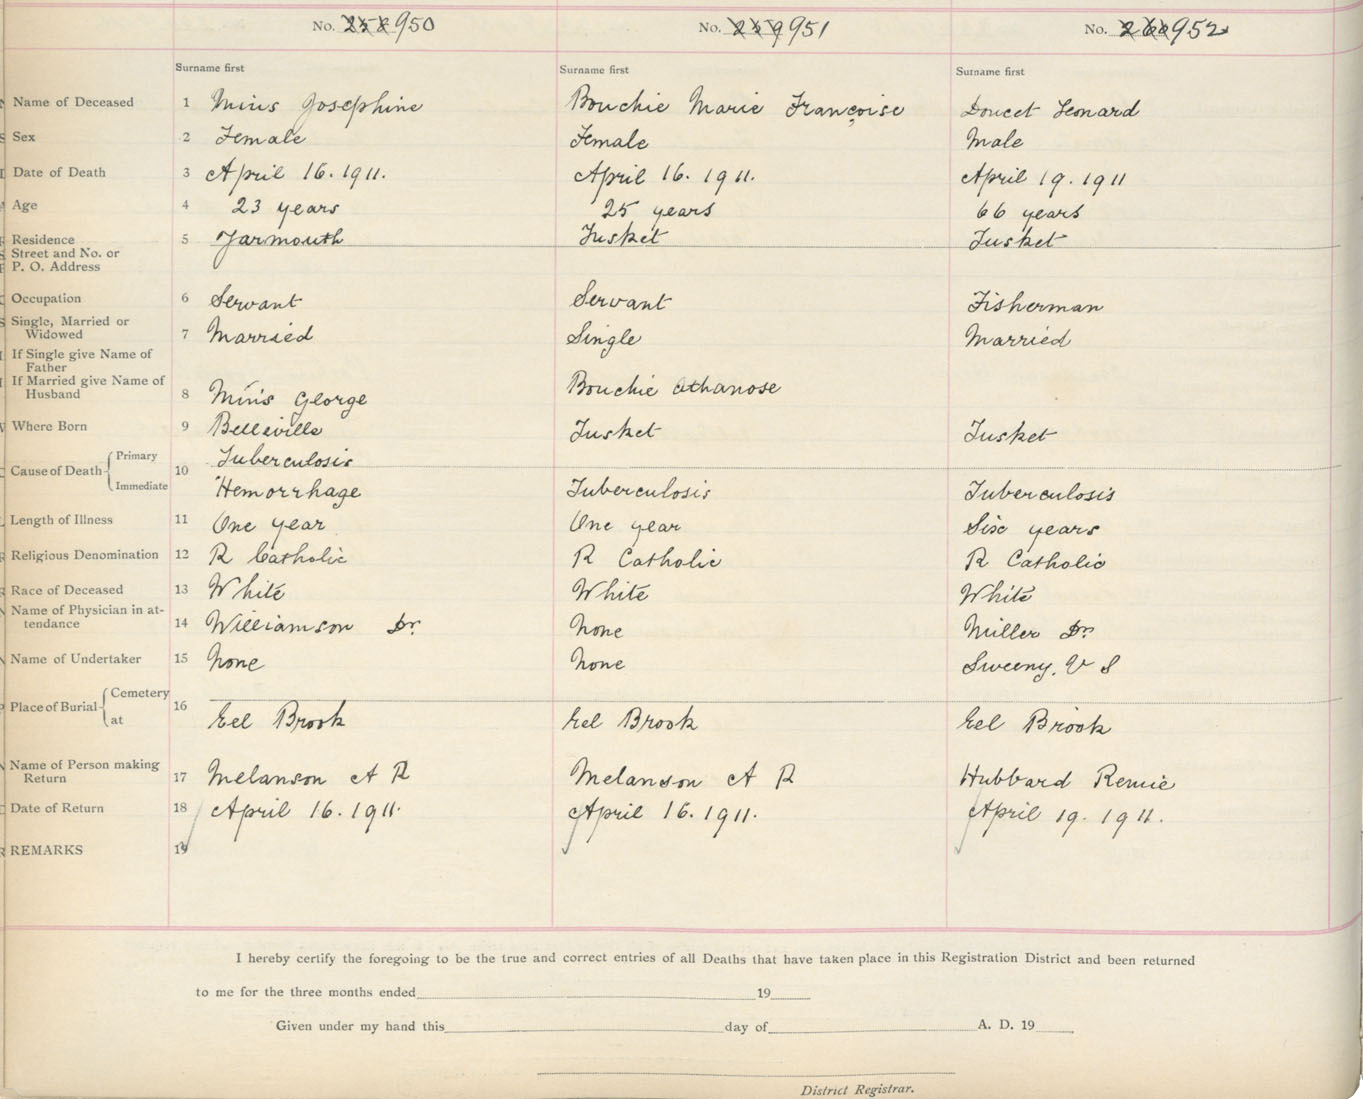 No. 258 950 No. 259 951 No. 260 952
Surname first Surname first Surname first
Name of Deceased 1 Mius Josephine Bouchie Marie Françoise Doucet Leonard
Sex 2 Female Female Male
Date of Death 3 April 16. 1911. April 16. 1911. April 19. 1911
Age 4 23 years 25 years 66 years
Residence 5 Yarmouth Tusket Tusket
Street and No. or
P. O. Address
Occupation 6 Servant Servant Fisherman
Single, Married or
Widowed 7 Married Single Married
If Single give Name of
Father
If Married give Name of
Husband 8 Mius George Bouchie Athanose
Where Born 9 Belleville Tusket Tusket
Cause of Death 10 Primary Tuberculosis
Immediate Hemorrhage Tuberculosis Tuberculosis
Length of Illness 11 One year One year Six years
Religious Denomination 12 R Catholic R Catholic R Catholic
Race of Deceased 13 White White White
Name of Physician in at-
tendance 14 Williamson Dr. None Miller Dr.
Name of Undertaker 15 None None Sweeny, V S
Place of Burial 16 Cemetery
at Eel Brook Eel Brook Eel Brook
Name of Person making
Return 17 Melanson A R Melanson A R Hubbard Remie
Date of Return 18 April 16. 1911. April 16. 1911. April 19. 1911.
REMARKS 19
I hereby certify the foregoing to be the true and correct entries of all Deaths that have taken place in this Registration District and been returned
to me for the three months ended 19
Given under my hand this day of A. D. 19
District Registrar.